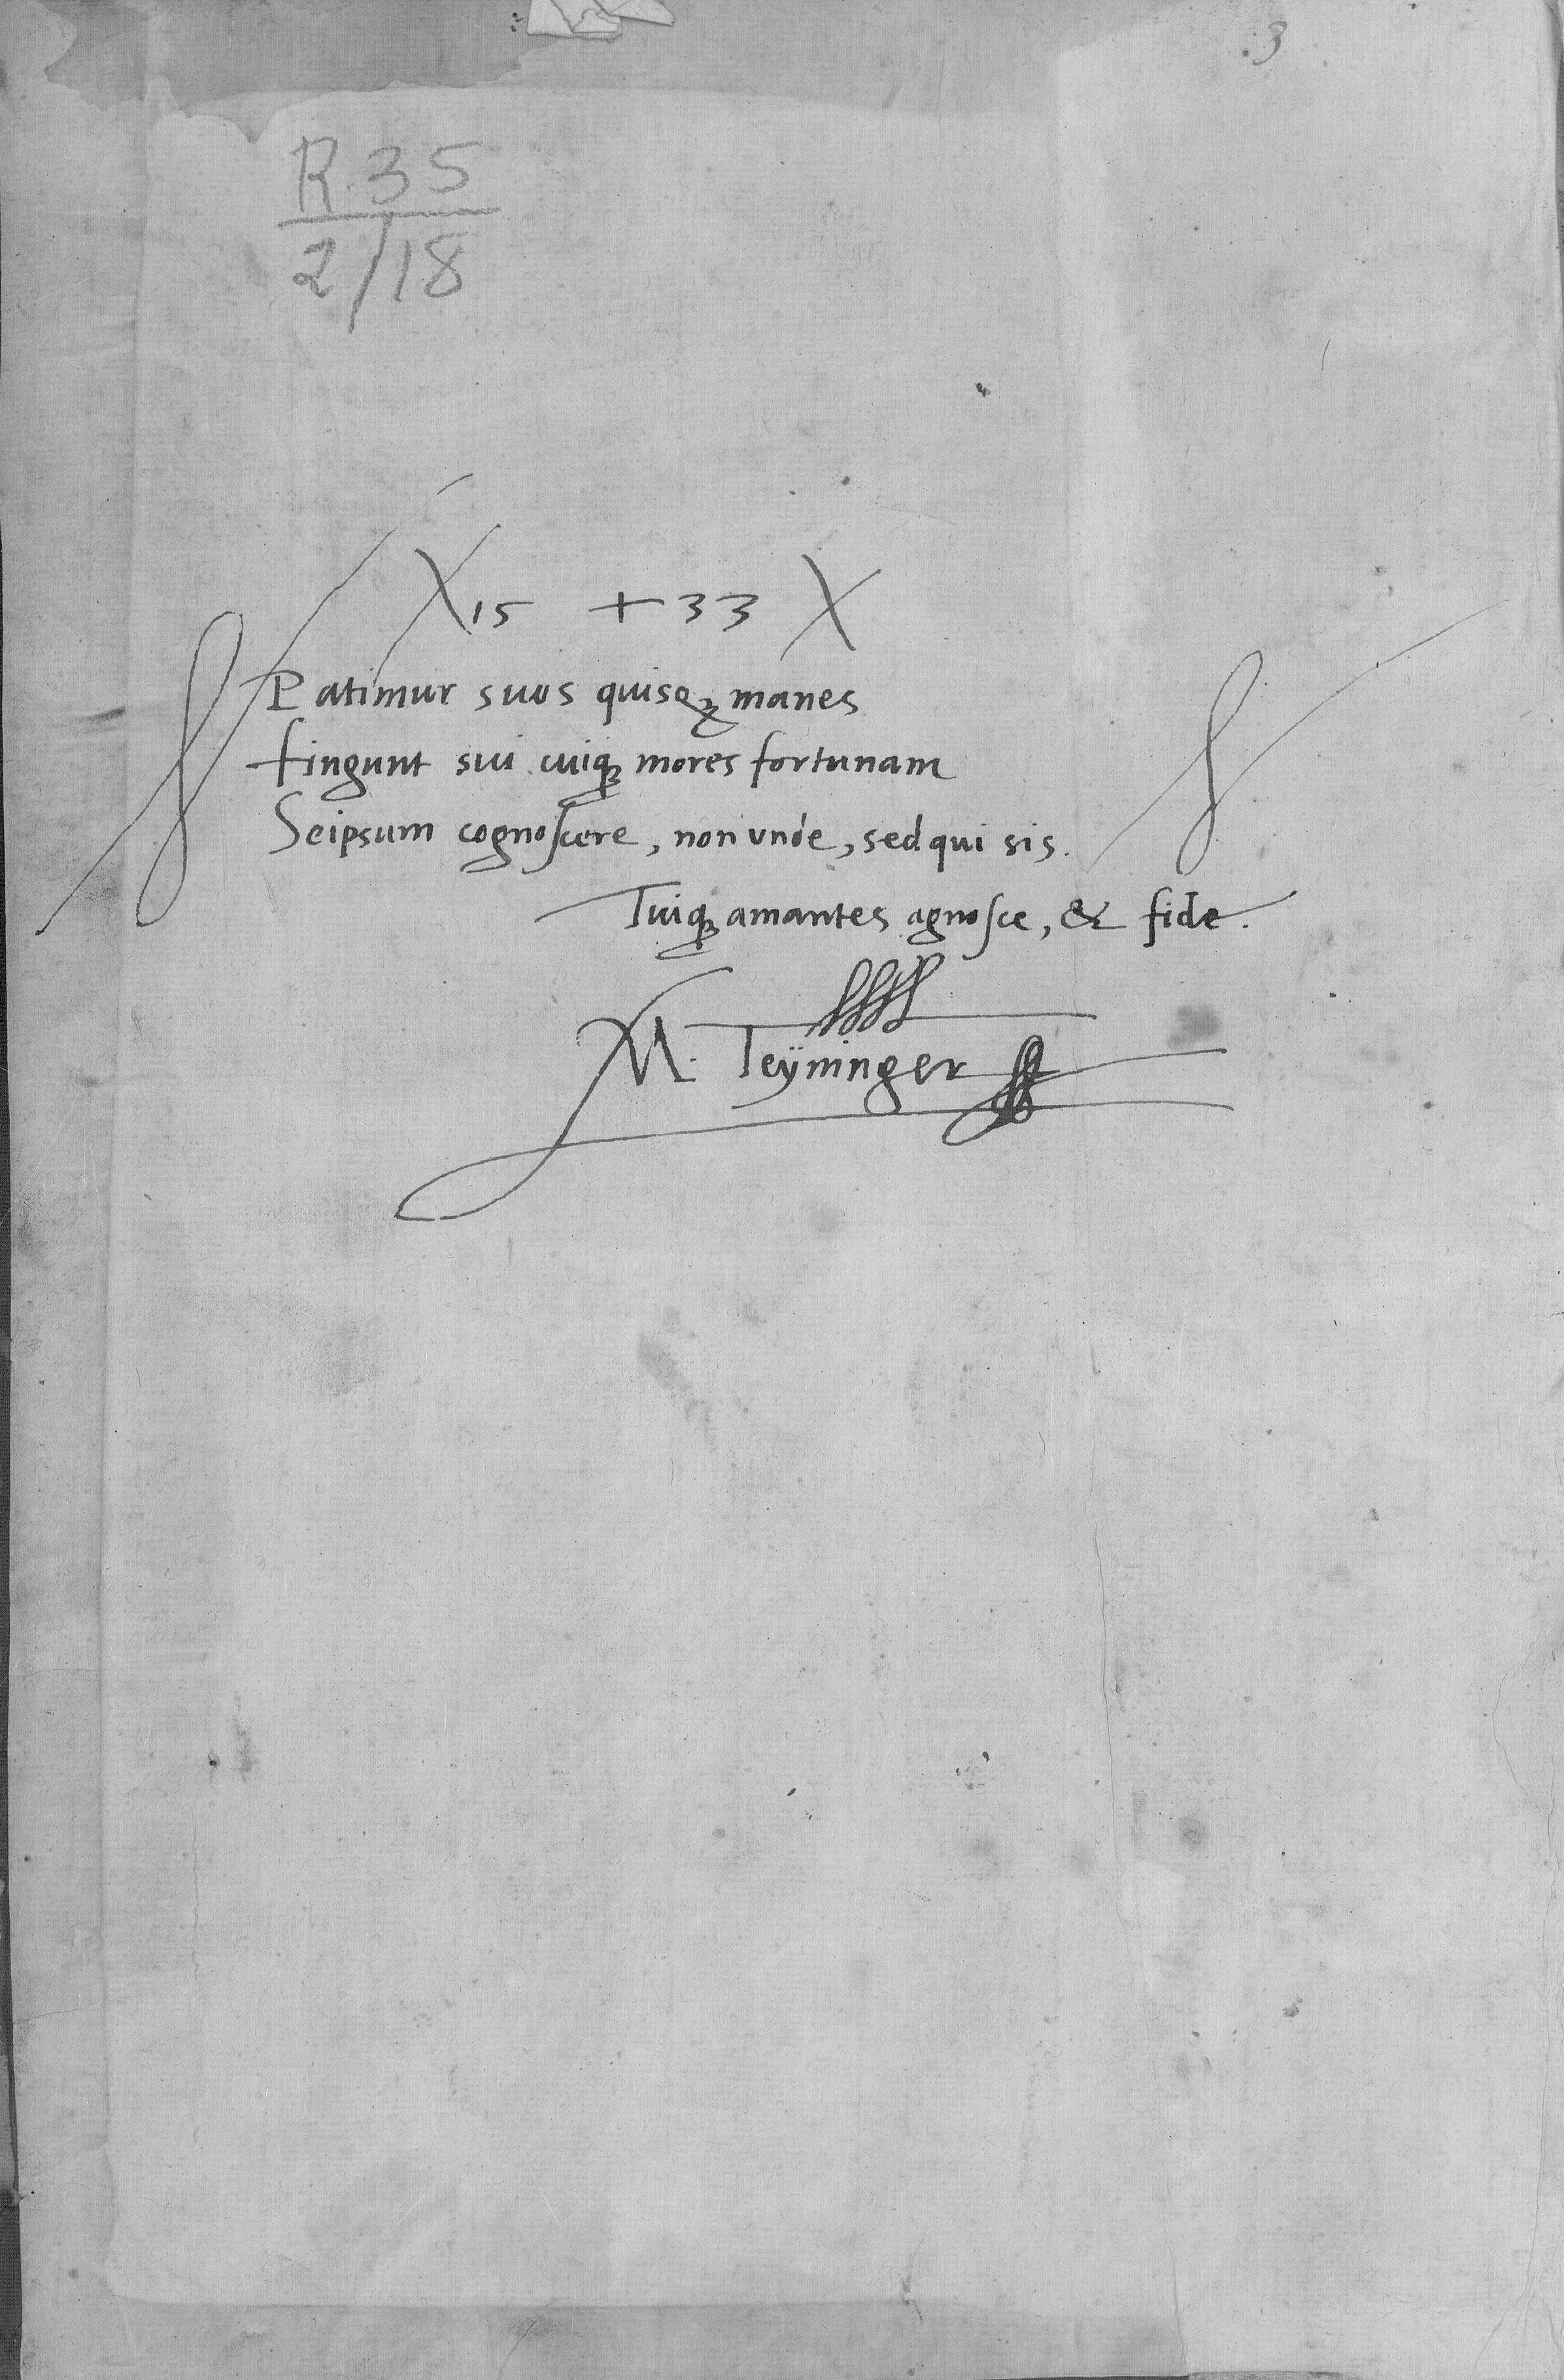 3
R. 35
2/18
X 15 + 33 X
Patimur suos quisqꝫ manes
fingunt sui cuiqꝫ mores fortunam
Seipsum cognoſcere, non vnde, sed qui sis.
Tuiqꝫ amantes agnoſce, & fide.
M. Teÿninger